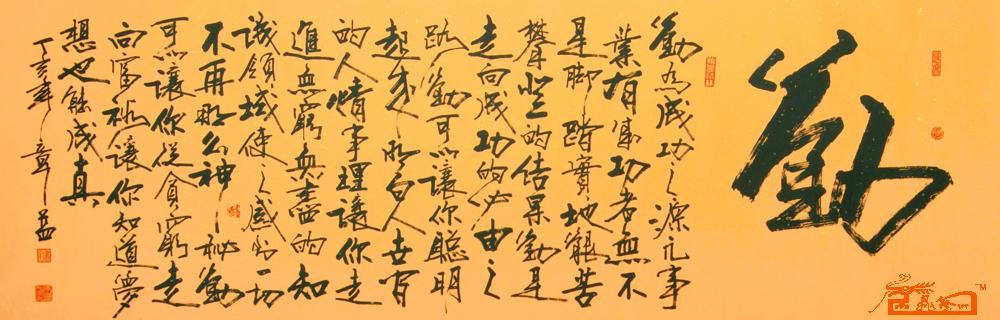 勤
勤为成功之源凡事
業有成功者無不
是脚踏實地艱苦
攀登的结果勤是
走向成功的必由之
路勤可以讓你聪明
起来明白人世间
的人情事理讓你走
進無窮無盡的知
識領域使之感到一切
不再那么神秘勤
可以讓你從貧窮走
向富裕讓你知道夢
想也能成真
丁亥年